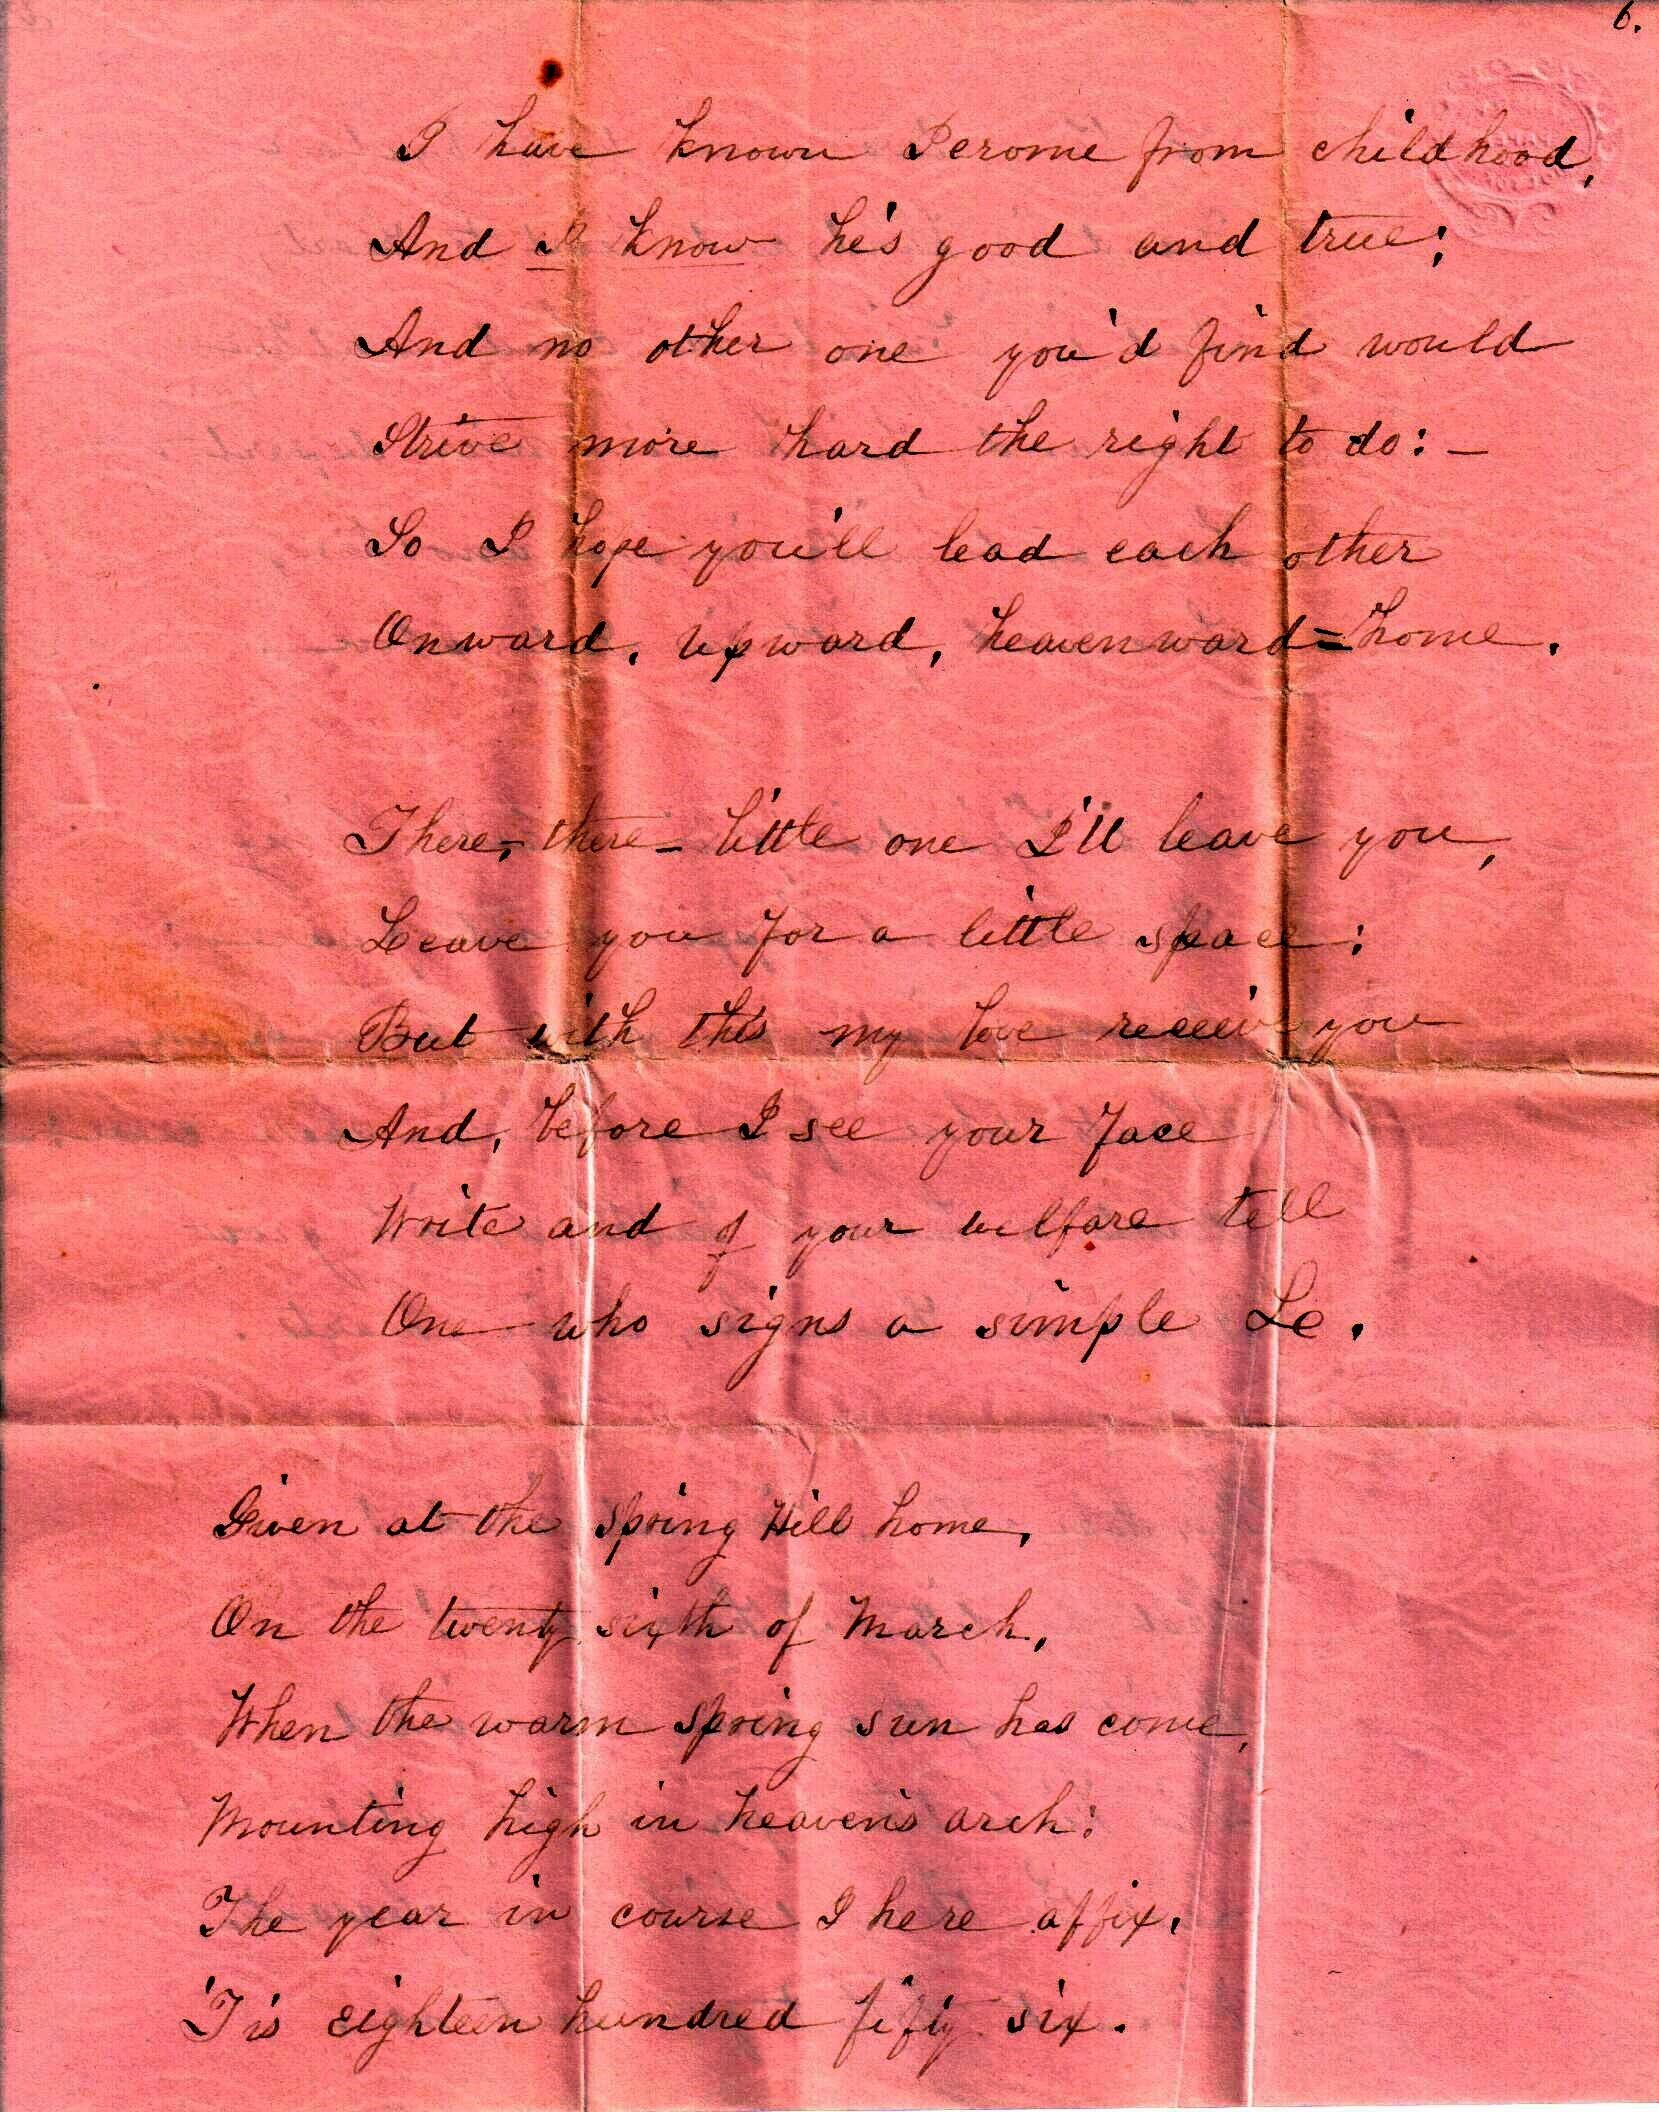 6.
I have known Jerome from childhood,
And I know he's good and true;
And no other one you'd find would
Strive more hard the right to do:—
So I hope you'll lead each other
Onward, upward, heavenward=home.
There,— there— little one I'll leave you,
Leave you for a little space:
But with this my love receive you
And, before I see your face
Write and of your welfare tell
One who signs a simple Le.
Given at the Spring Hill home,
On the twenty sixth of March,
When the warm spring sun has come,
Mounting high in heaven's arch:
The year in course I here affix,
'Tis eighteen hundred fifty six.